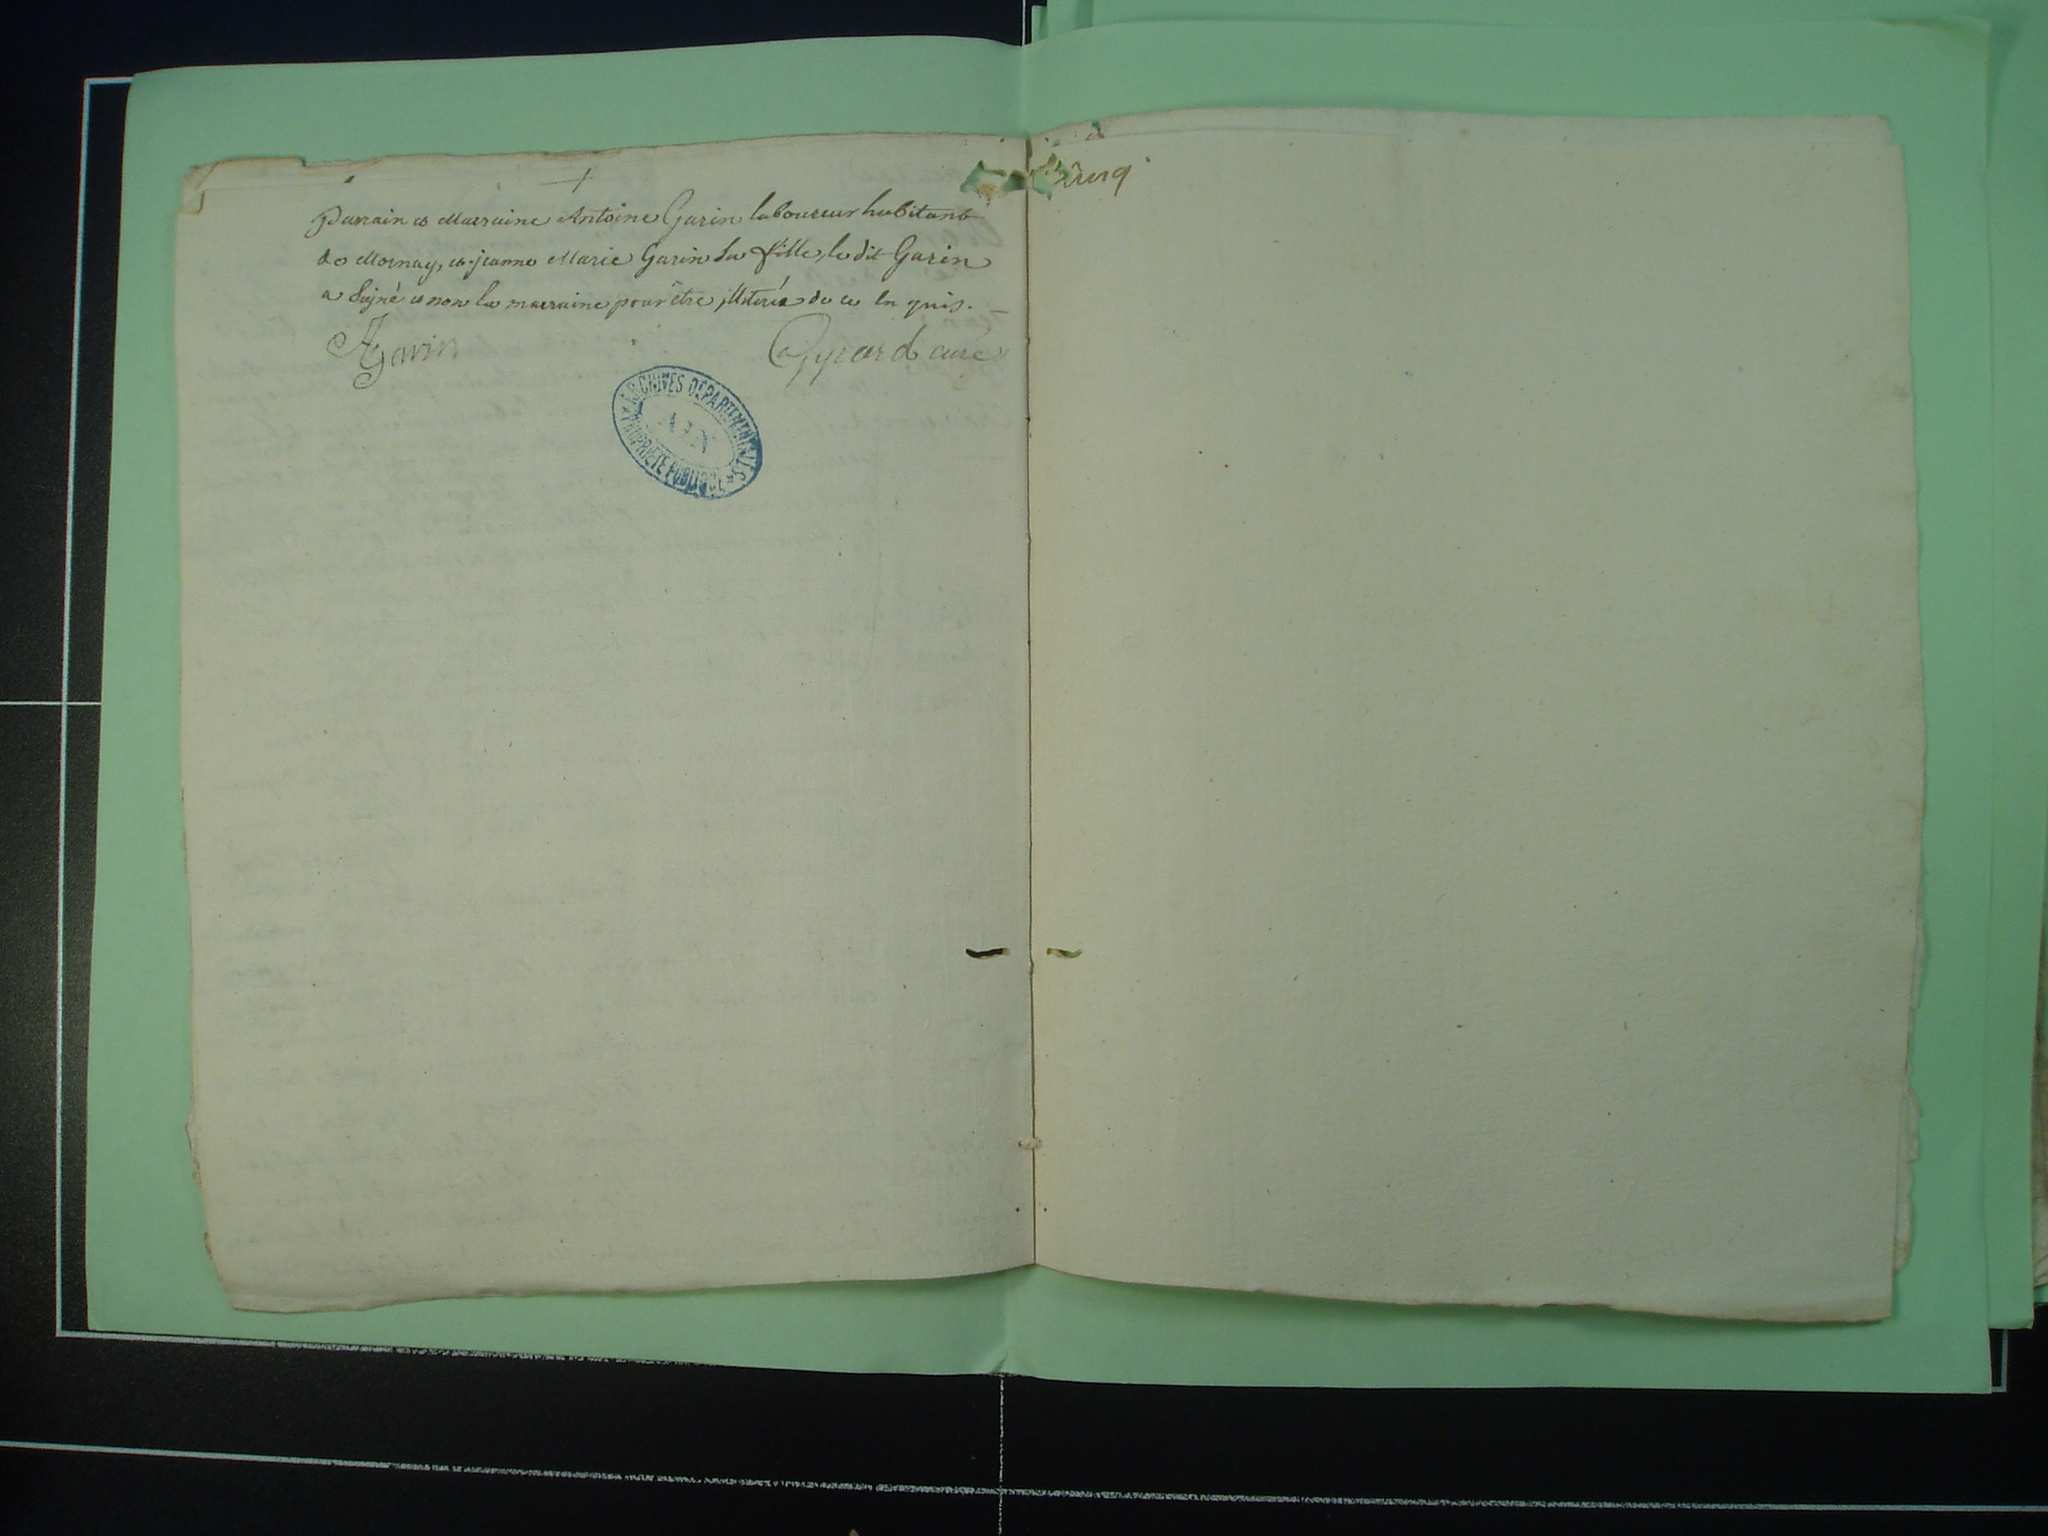 Parrain et Marraine Antoine Garin laboureur habitant
de Mornay, et jeanne Marie Garin sa fille, le dit Garin
a signé et non la marraine pour être illiterée de ce en quis.
AGarin
Gyrard curé
ARCHIVES DEPARTEMENTALES
AIN
PROPRIETE PUBLIQUE
cinq